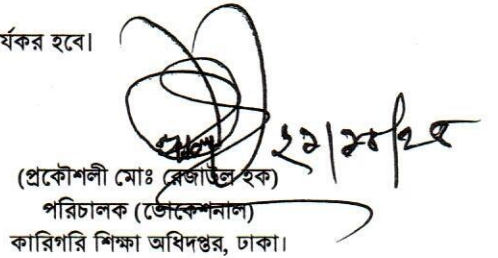 র্যকর হবে।
(প্রকৌশলী মোঃ রেজাউল হক)
পরিচালক (ভোকেশনাল)
কারিগরি শিক্ষা অধিদপ্তর, ঢাকা।